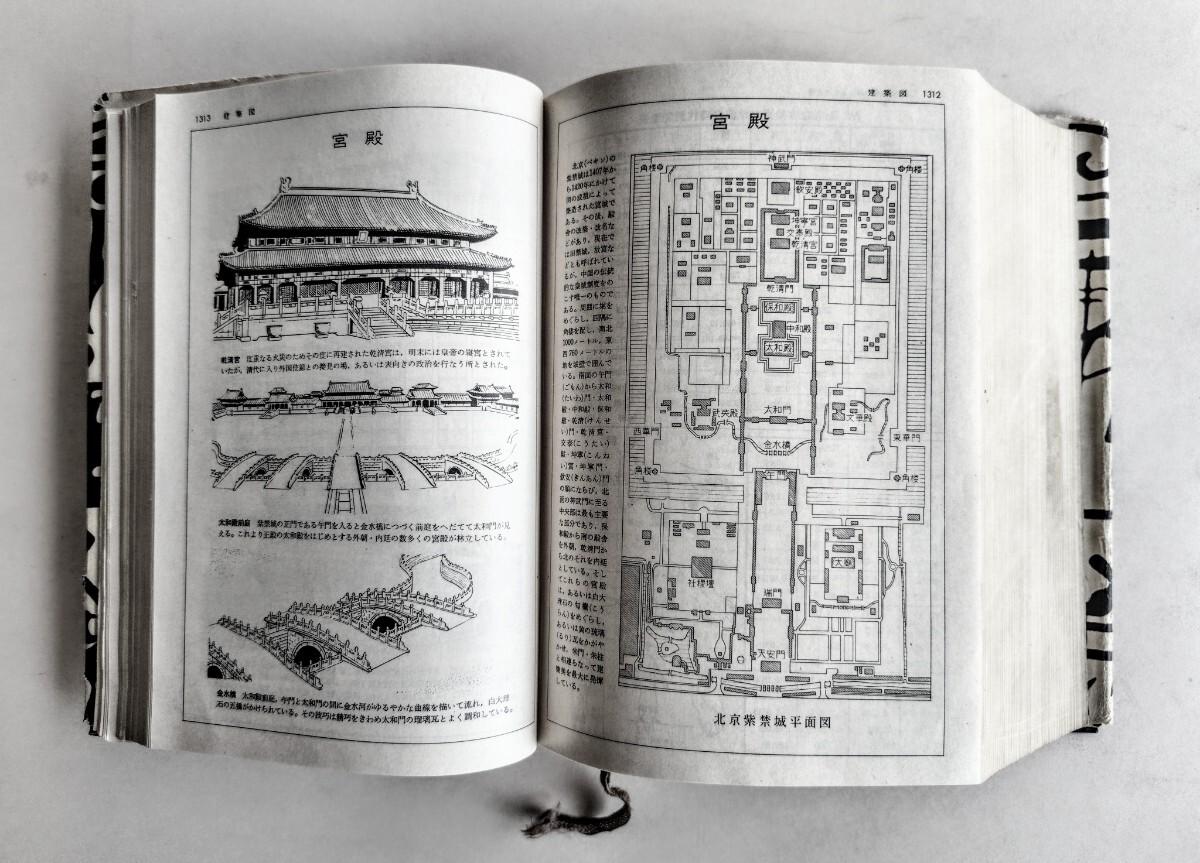 建築図 1312
宮殿
北京(ペキン)の
紫禁城は1407年か
ら1420年にかけて
明の成祖によって
営造された宮城で
ある。その後,殿
舎の改築・改名な
どがあり,現在で
は旧禁城,故宮な
どとも呼ばれてい
るが,中国の伝統
的な宮城制度をの
こす唯一のもので
ある。周囲に堀を
めぐらし,四隅に
角楼を配し,南北
1000メートル,東
西760メートルの
地を城壁で囲んで
いる。南面の午門
(ごもん)から太和
(たいわ)門・太和
殿・中和殿・保和
殿・乾清(けんせ
い)門・乾清宮・
交泰(こうたい)
殿・坤寧(こんね
い)宮・坤寧門・
欽安(きんあん)門
の順にならび,北
面の神武門に至る
中央部は最も主要
な部分であり,保
和殿から南の殿舎
を外朝,乾清門か
ら北のそれを内廷
としている。そし
てこれらの宮殿
は,あるいは白大
理石の勾欄(こう
らん)をめぐらし,
あるいは黄の琉璃
(るり)瓦をかがや
かせ,朱門・朱柱
と相連なって建
築美を最大に発揮
している。
神武門
角楼
角楼
欽安殿
坤寧宮
交泰殿
乾清宮
乾清門
保和殿
中和殿
太和殿
武英殿
太和門
文華殿
西華門
金水橋
東華門
角楼
午門
角楼
社稷壇
太廟
端門
天安門
北京紫禁城平面図
1313 建築図
宮殿
乾清宮 度重なる火災のためその度に再建された乾清宮は,明末には皇帝の寝宮とされて
いたが,清代に入り外国使節との接見の場,あるいは表向きの政治を行なう所とされた。
太和殿前庭 紫禁城の正門である午門を入ると金水橋につづく前庭をへだてて太和門が見
える。これより正殿の太和殿をはじめとする外朝・内廷の数多くの宮殿が林立している。
金水橋 太和殿前庭,午門と太和門の間に金水河がゆるやかな曲線を描いて流れ,白大理
石の五橋がかけられている。その技巧は精巧をきわめ太和門の瑠璃瓦とよく調和している。